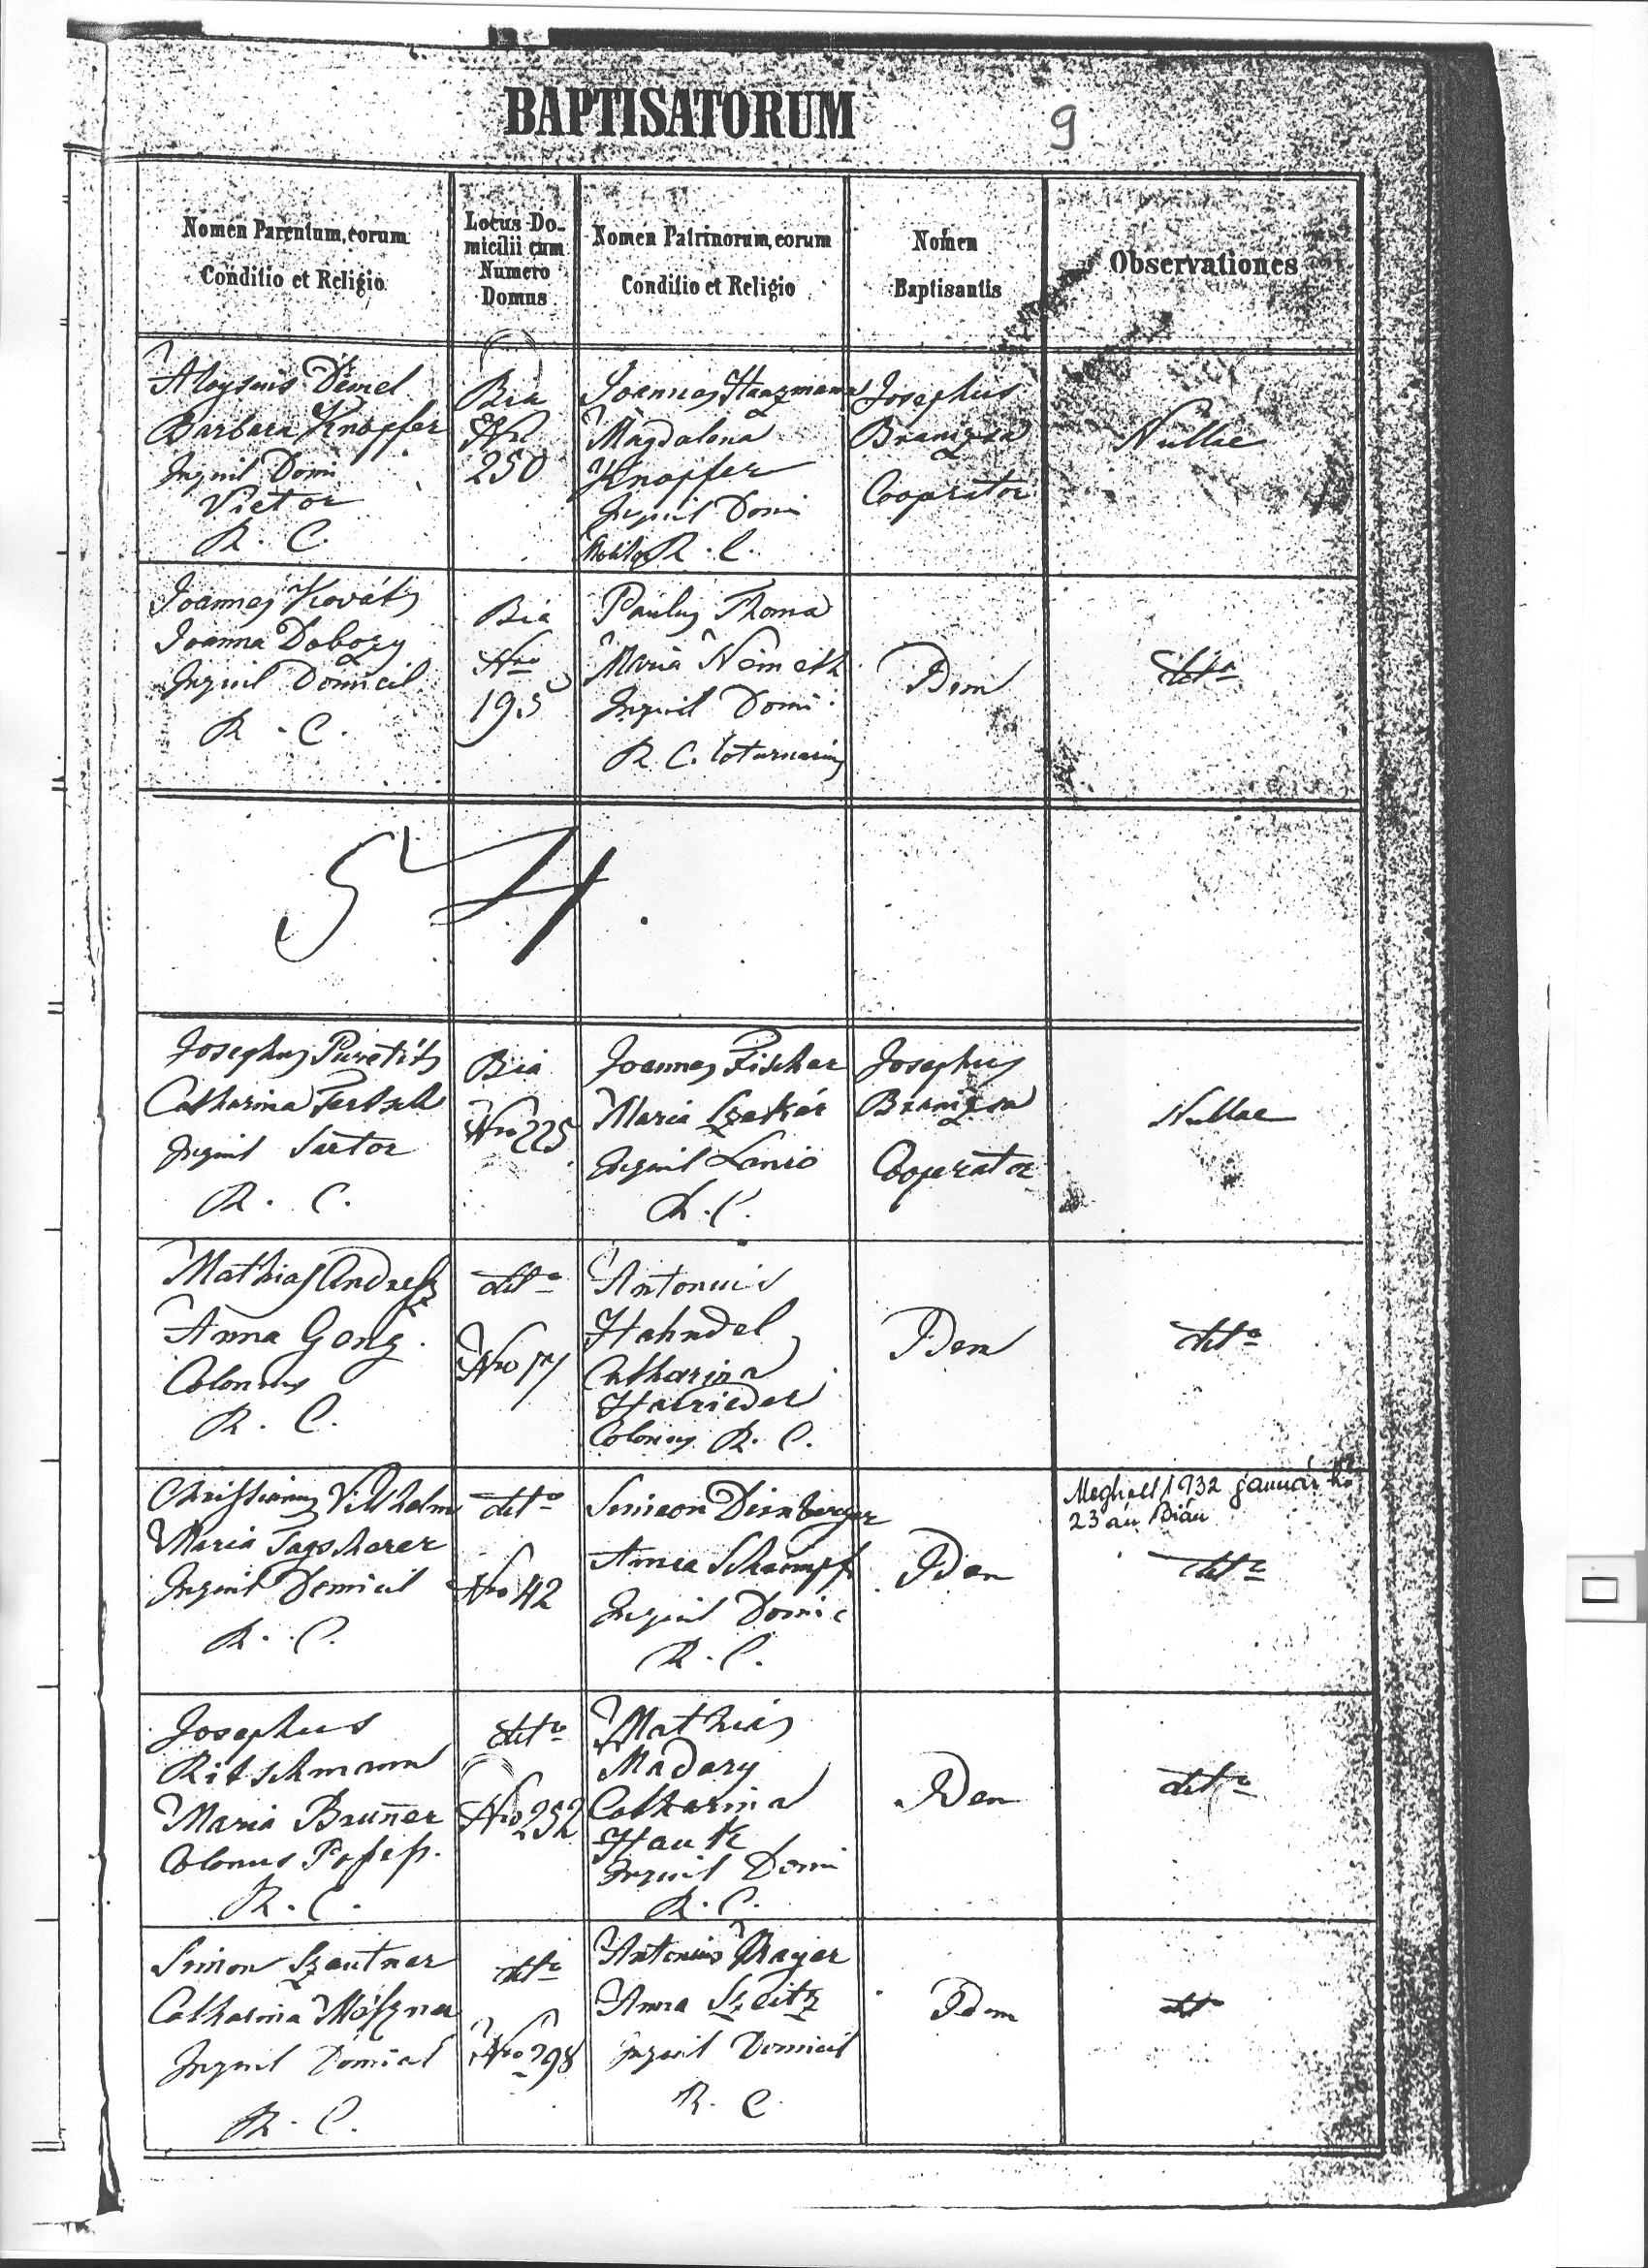 BAPTISATORUM
9
Nomen Parentum, eorum
Conditio et Religio
Locus Do-
micilii cum
Numero
Domus
Nomen Patrinorum, eorum
Conditio et Religio
Nomen
Baptisantis
Observationes
Aloysius Demel
Barbara Knopfer
Inquil Domi
Vietor
R. C.
Bia
Nro
250
Joannes
Magdalena
Knopfer
Inquil Domi
R. C.
Josephus
Cooperator
Nullae
Joannes Kováts
Joanna Dobozy
Inquil Domicil
R. C.
Bia
Nro
195
Paulus Thoma
Maria Németh
Inquil Domi
R. C. Coturnarius
Dem
dtto
54.
Josephus
Catharina
Inquil Sartor
R. C.
Bia
Nro 225
Joannes Fischer
Maria
Inquil Lanio
R. C.
Josephus
Cooperator
Nullae
Mathias
Anna
Colonus
R. C.
dtto
Nro
Antonius
Hahndel
Catharina
Colonus R. C.
Dem
dtto
Christianus Vilhelm
Maria Tagscherer
Inquil Domicil
R. C.
dtto
Nro 42
Simeon Dirnberger
Schrimpf
Inquil Domic
R. C.
Dem
Meghalt 1932 január hó
23 án Bián
dtto
Josephus
Ritschmann
Maria Bruñer
Colonus
R. C.
dtto
Nro 252
Mathias
Madary
Catharina
Hauk
Inquil Domi
R. C.
Dem
dtto
Simon Szautner
Catharina
Inquil Domicil
R. C.
dtto
Nro 298
Antonius Mayer
Anna Szeitz
Inquil Domicil
R. C.
Dem
dtto